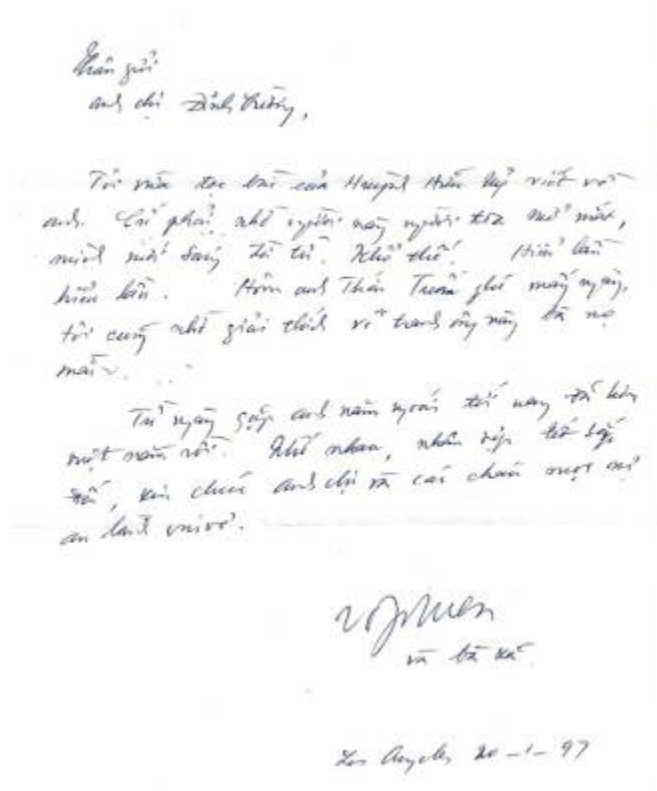 Thân gửi
anh chị Đinh Cường,
Tôi vừa đọc bài của Huỳnh Hữu Ủy viết về
anh. Cứ phải nhờ người này người tọa mở mắt,
mình mới sáng dần ra. Khổ thế! Hiểu lần
hiểu lần. Hôm anh Thái Tuấn ghé mấy ngày,
tôi cũng nhờ giải thích về tranh ông này bà nọ
mãi.
Từ ngày gặp anh năm ngoái tới nay đã hơn
một năm rồi. Nhớ nhau, nhân dịp tết sắp
tới, xin chúc anh chị và các cháu mọi sự
an lành vui vẻ.
Võ Phiến
và bà xã.
Los Angeles 20-1-97